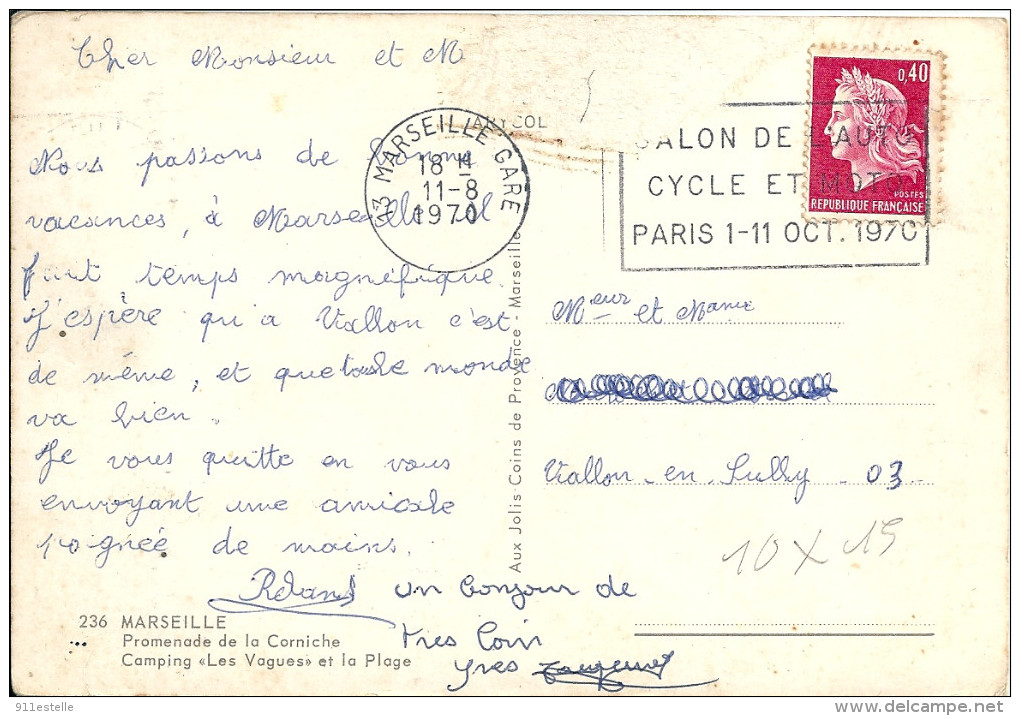 Cher Monsieur et M
ARTCOL
13 MARSEILLE GARE
18 H
11-8
1970
SALON DE L'AUTO
CYCLE ET MOTO
PARIS 1-11 OCT. 1970
0,40
POSTES
REPUBLIQUE FRANÇAISE
Nous passons de bonne
vacances, à Marseille il
fait temps magnéfique.
J'espère qui a Vallon c'est
de même, et que tous le monde
va bien.
Je vous quitte en vous
envoyant une amicale
poignée de mains.
Roland un bonjour de
très loin
Yves
Aux Jolis Coins de Provence - Marseille
Meur et Mame
Vallon en Sully 03
10 X 15
236 MARSEILLE
Promenade de la Corniche
Camping «Les Vagues» et la Plage
911estelle
http://www.delcampe.net